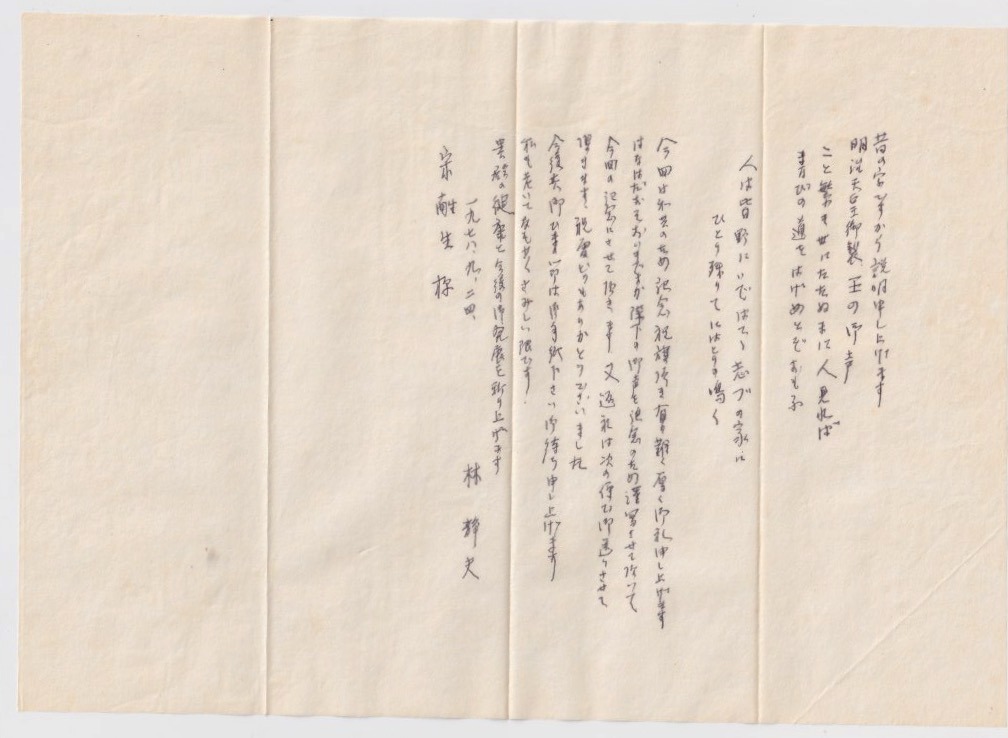 昔の字ですから説明申し上げます
明治天皇御製 玉の御声
こと繁き世にたたぬまに人見れば
まなびの道をはげめとぞおもふ
人は皆野にいではてし志づの家に
ひとり残りてにはとり鳴く
今回は私共のため記念祝旗頂き有難く厚く御礼申し上げます
はなはだおそれおりますが陛下の御声を記念のため謹写させて頂いて
今回の記念にさせて頂きます 又返礼は次の便で御送りさせて
頂きます 祝電どうもありがとうございました
今後共御ひまの節は御手紙下さい御待ち申し上げます
私も老いて友も少くさみしい限です.
貴殿の健康と今後の御発展を祈り上げます
林 静夫
一九七八、九、二四、
宗 生様